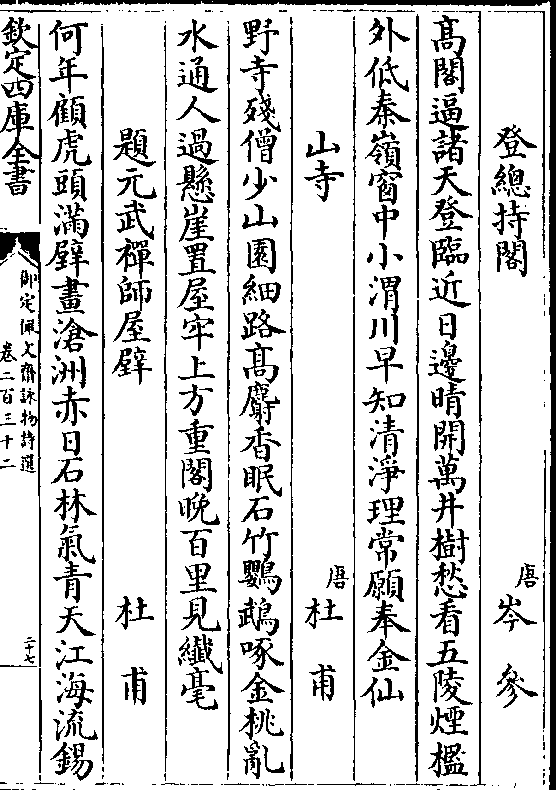 登總持閣　唐　岑參
髙閣逼諸天登臨近日邊晴開萬井樹愁看五陵煙檻
外低秦嶺窗中小渭川早知清淨理常願奉金仙
山寺　唐　杜甫
野寺殘僧少山園細路髙麝香眠石竹鸚鵡啄金桃亂
水通人過懸崖置屋牢上方重閣晚百里見纖毫
題元武禪師屋壁　杜甫
何年顧虎頭滿壁畫滄洲赤日石林氣青天江海流錫
欽定四庫全書
御定佩文齋詠物詩選
卷二百三十二
二十七